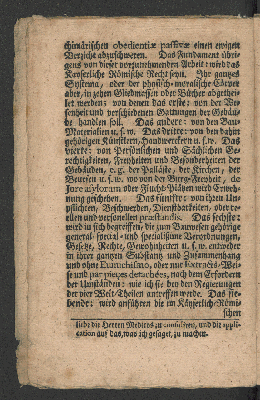 chimärischen obedientiæ passivæ einen ewigen
Verzicht abzuschweren. Das Fundament übri-
gens von dieser vorzunehmenden Arbeit wird das
Kayserliche Römische Recht seyn. Ihr gantzes
Systema, oder der physisch-moralische Cörper
aber, in zehen Gliedmassen oder Bücher abgethei-
let werden: von denen das erste: von der We-
senheit und verschiedenen Gattungen der Gebäu-
de handlen soll. Das andere: von den Bau-
Materialien u. s. w. Das dritte: von den dahin
gehörigen Künstlern, Handwerckern u. s. w. Das
vierte: von Persöhnlichen und Sächlichen Ge-
rechtigkeiten, Freyheiten und Besonderheiten der
Gebäuden, e. g. der Palläste, der Kirchen, der
Beuesen u. s. w. wo von der Burg-Freyheit, de
Jure asylorum oder Flucht-Plätzen wird Erweh-
nung geschehen. Das fünffte: von ihren Un-
pflichten, Beschwerden, Dienstbarkeiten, oder re-
ellen und personellen præstandis. Das sechste:
wird in sich begreiffen, die zum Bauwesen gehörige
general- special- und specialissime Verordnungen,
Gesetze, Rechte, Gewohnheiten u. s. w. entweder
in ihrer gantzen Substantz und Zusammenhang
und ohne oder nur Extracts-Wei-
se und par pieces detachées, nach dem Erfordern
der Umständen: wie ich sie bey den Regierungen
der vier Welt-Theilen antreffen werde. Das sie-
bende: wird anführen die im Käyserlich-Römi-
schen
liebt die Herren Medicos zu consuliren, und die appli-
cation auf das, was ich gesaget, zu machen.